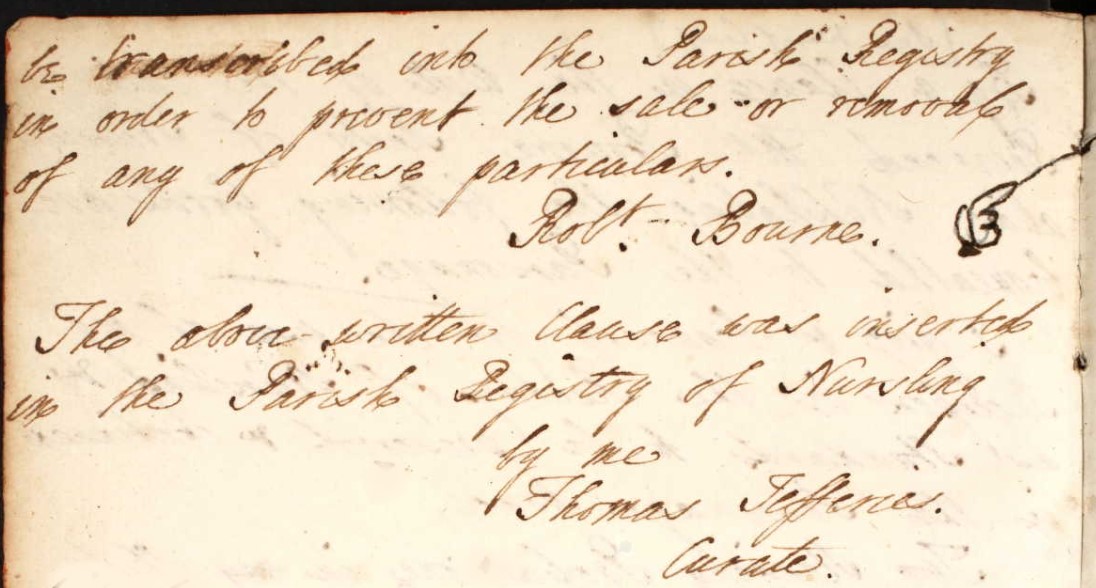 be transcribed into the Parish Registry
in order to prevent the sale or removal
of any of these particulars.
Robt. Bourne.
The above written Clause was inserted
in the Parish Registry of Nursling
by me
Thomas Jefferies.
Curate.